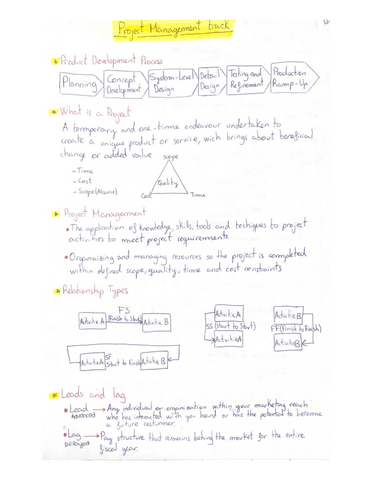 Project Management track
Product Development Process
Planning
Concept Development
System-Level Design
Detail Design
Testing and Refinement
Production Ramp-Up
What is a Project
A termporary and one-time endeavour undertaken to
create a unique product or service, wich brings about beneficial
change or added value
Scope
- Time
- Cost
- Scope
Quality
Cost
Time
Project Management
The application of knowledge, skills, tools and techiques to project
activities to meet project requirements
Organizing and managing resources so the project is completed
within defined scope, quality, time and cost constraints
Relationship Types
FS
Activitie A
(Finish to Start)
Activitie B
Activitie A
SS (Start to Start)
Activitie A
Activitie B
FF (Finish to Finish)
Activitie B
SF
Activitie A
Start to Finish
Activitie B
Leads and lag
Lead
Advanced
Any individual or organisation within your marketing reach
who has interacted with you brand or has the potential to become
a future costumer.
Lag
Delayed
Pay structure that remains behing the market for the entire
fiscal year.